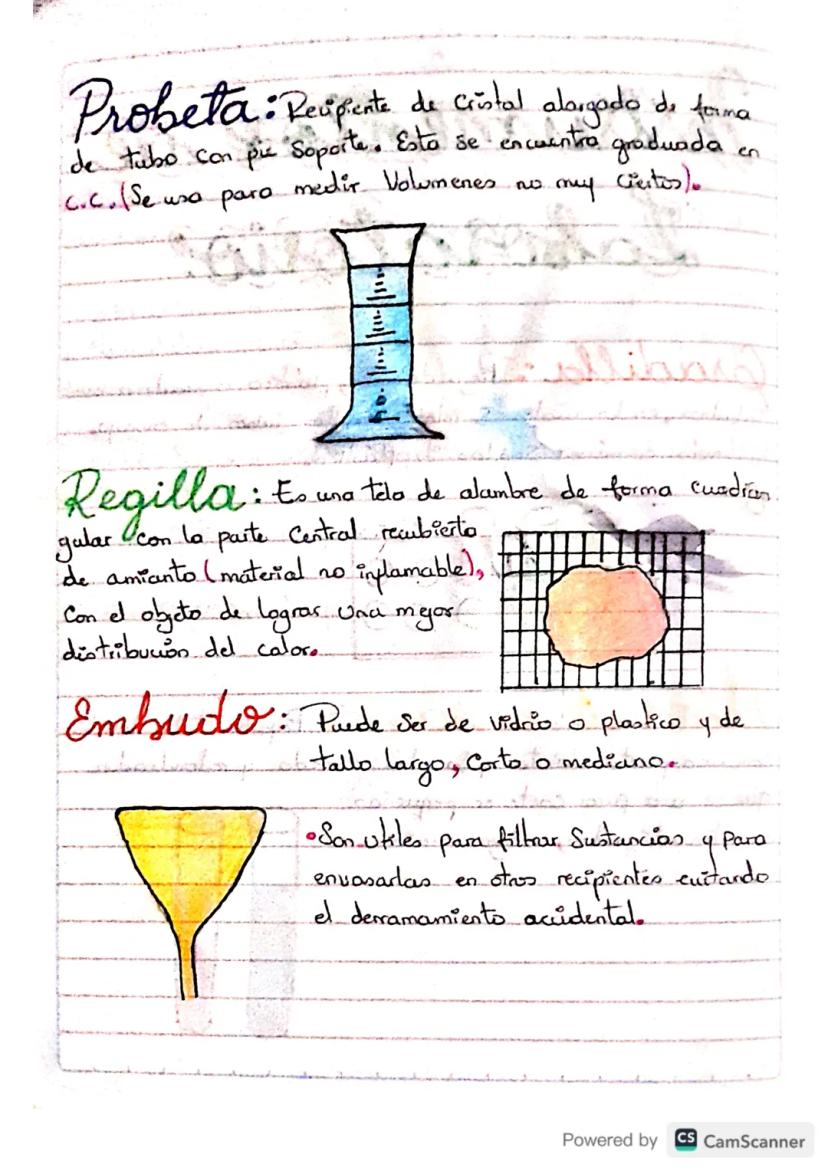 Probeta: Recipiente de cristal alargado de forma
de tubo con pie soporte. Esta se encuentra graduada en
c.c. (Se usa para medir Volumenes no muy ciertos).
Regilla: Es una tela de alambre de forma cuadran
gular con la parte Central recubierto
de amianto (material no inflamable),
Con el objeto de lograr una mejor
distribución del calor.
Embudo: Puede Ser de vidrio o plastico y de
tallo largo, Corto o mediano.
•Son utiles para filtrar Sustancias y para
envasarlas en otros recipientes evitando
el derramamiento accidental.
Powered by CS CamScanner